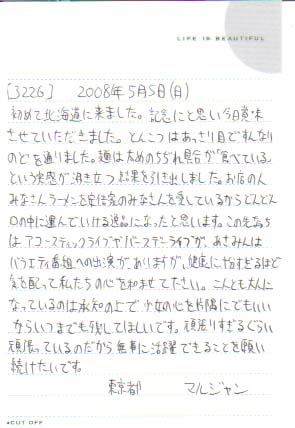 LIFE IS BEAUTIFUL
[3226] 2008年5月5日(日)
初めて北海道に来ました。記念にと思い今日賞味
させていただきました。とんこつはあっさり目ですんなり
のどを通りました。麺は太めのちぢれ具合が"食べている"
という実感が沸き立つ結果を引き出しました。お店の人
みなさんラーメンを愛しているからどんどん
口の中に運んでいける逸品になったと思います。この先
はアコースティックライブやバースデーライブが、あさみんは
バラエティ番組への出演がありますが、健康にやりすぎるほど
気を配って私たちの心を和ませて下さい。こんとも大人に
なっているのは承知の上で少女の心を片隅にでもいい
からいつまでも残してほしいです。頑張りすぎるぐらい
頑張っているのだから無事に活躍できることを願い
続けたいです。
東京都 マルジャン
CUT OFF